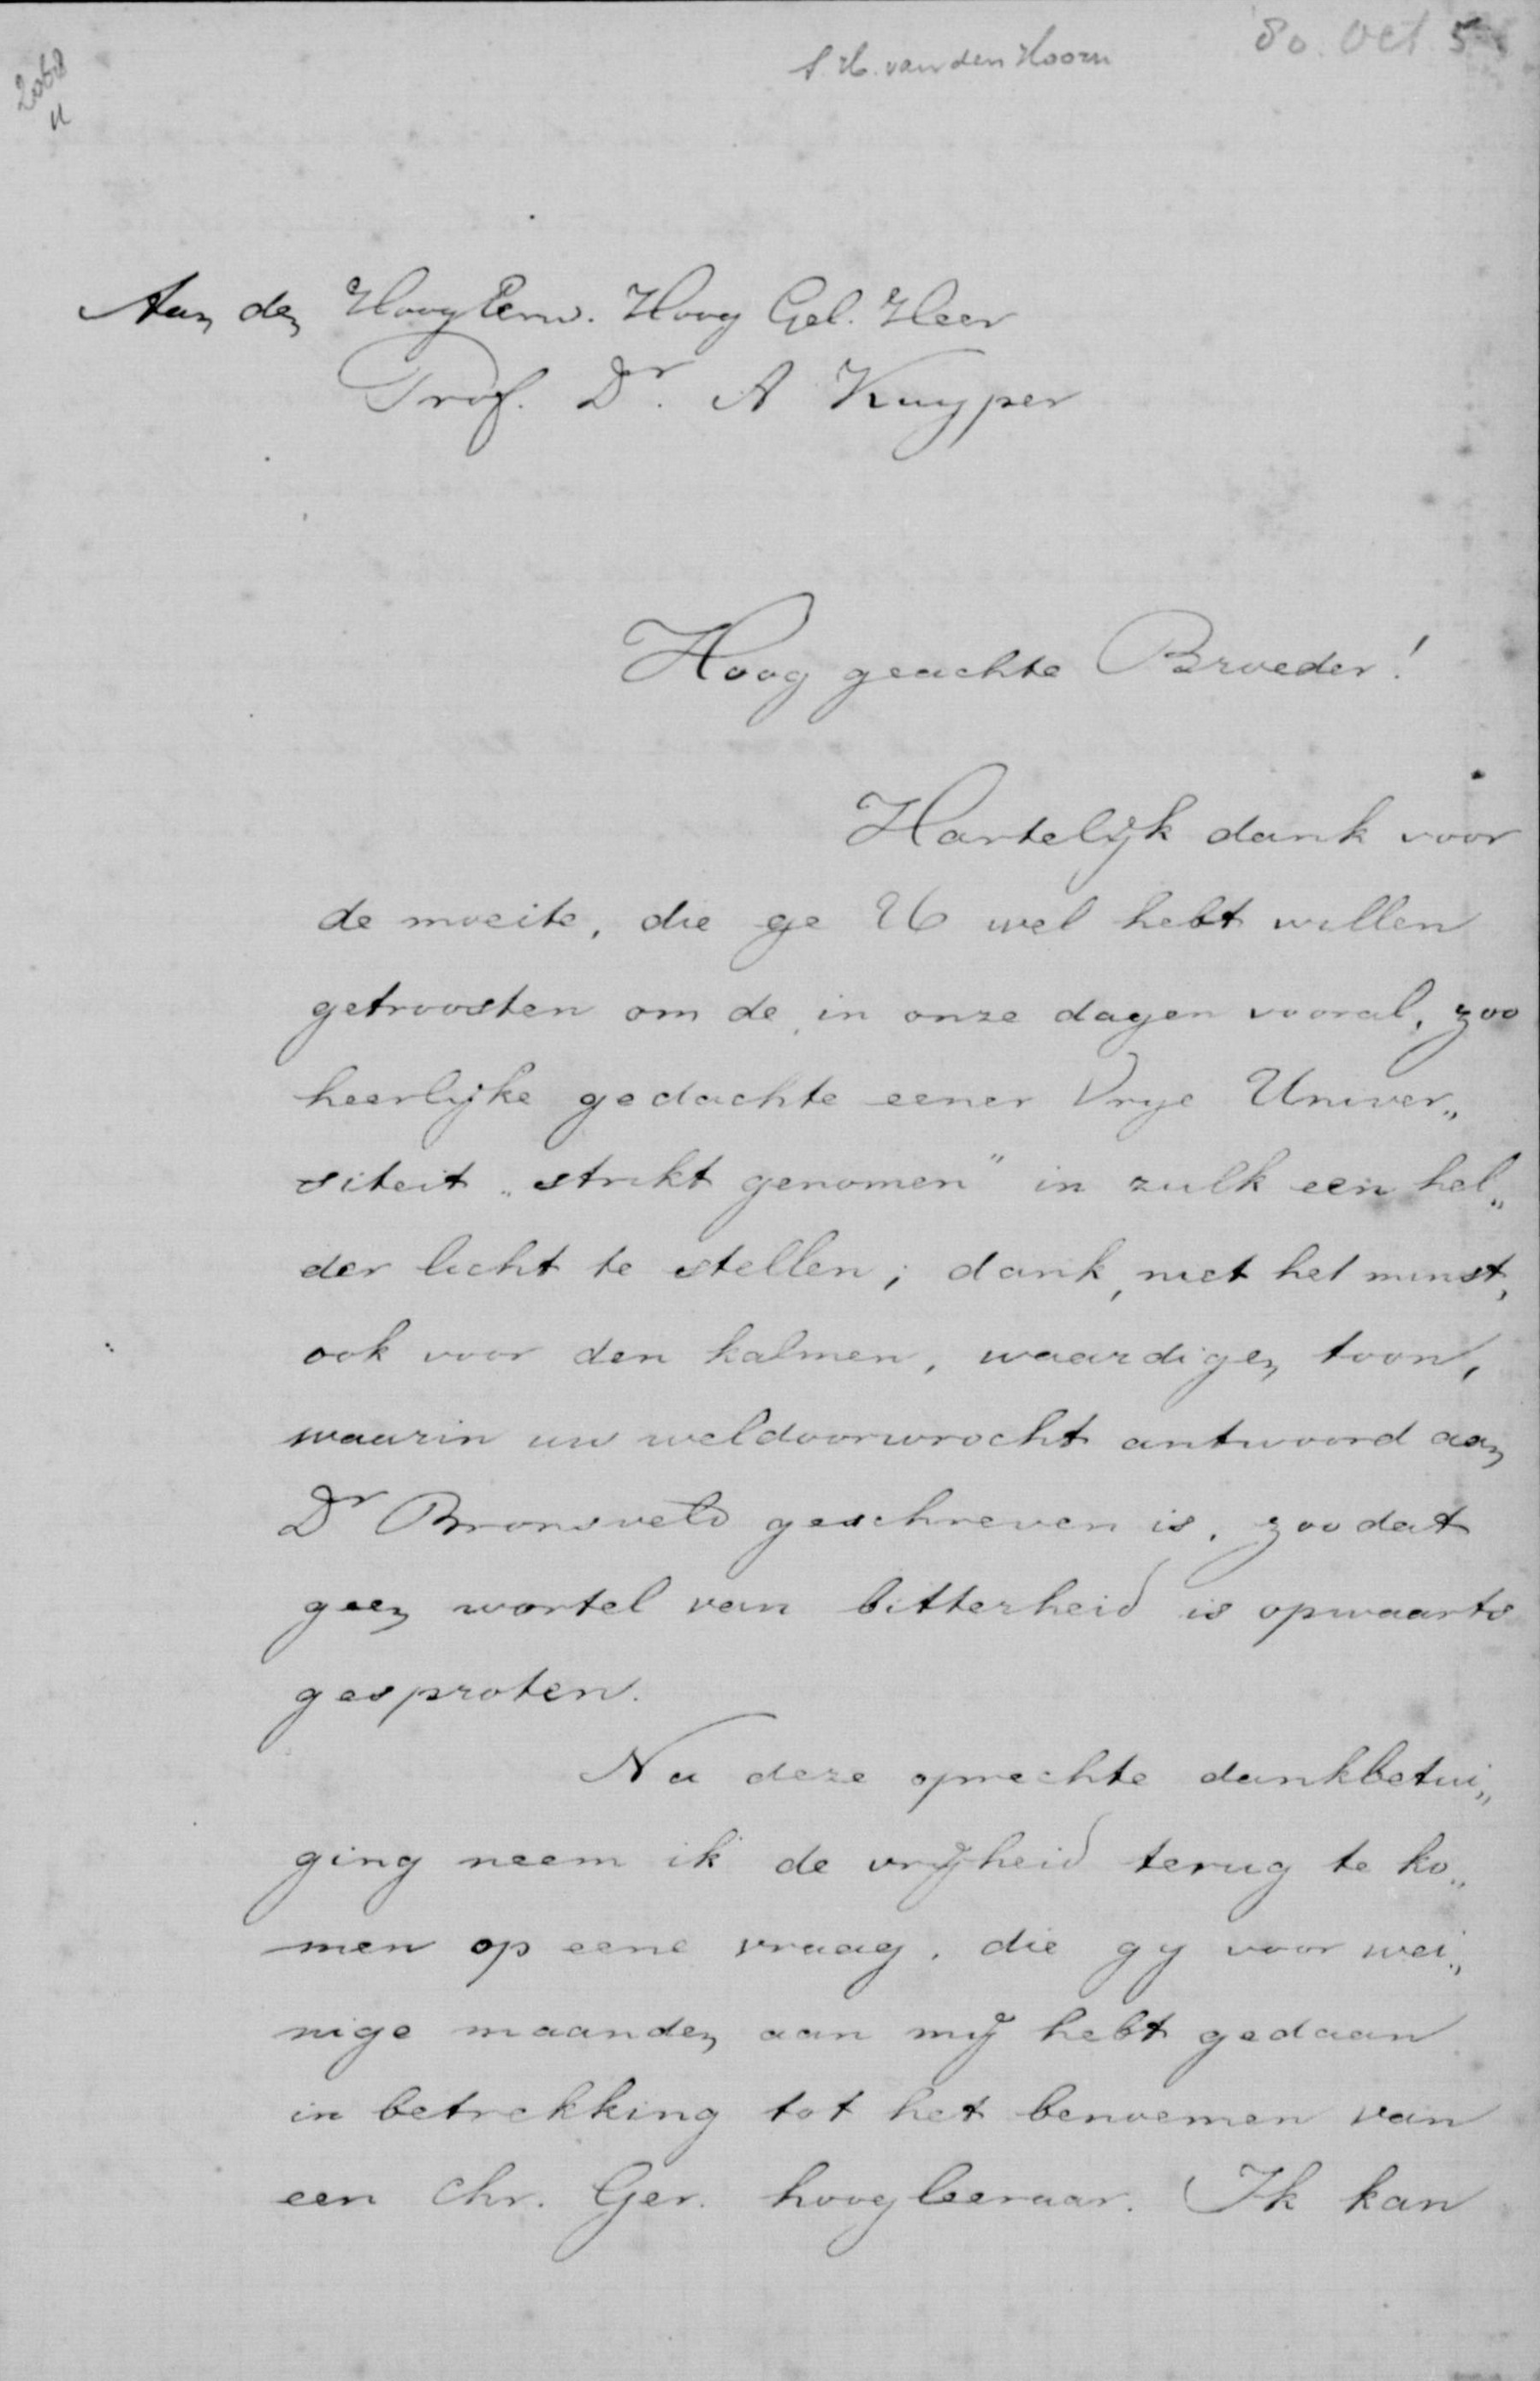 80. Oct. 5
S. H. van den Hoorn
2068
Aan den Hoog Eerw. Hoog Gel. Heer
Prof. Dr. A Kuyper
Hoog geachte Broeder!
Hartelijk dank voor
de moeite, die ge U wel hebt willen
getroosten om de, in onze dagen vooral, zoo
heerlijke gedachte eener Vrije Univer„
siteit „strikt genomen" in zulk een hel„
der licht te stellen; dank, niet het minst,
ook voor den kalmen, waardigen toon,
waarin uw weldoorwrocht antwoord aan
Dr Bronsveld geschreven is, zoodat
geen wortel van bitterheid is opwaarts
gesproten.
Na deze oprechte dankbetui„
ging neem ik de vrijheid terug te ko„
men op eene vraag, die gij voor wei„
nige maanden aan mij hebt gedaan
in betrekking tot het benoemen van
een Chr. Ger. hoogleeraar. Ik kan